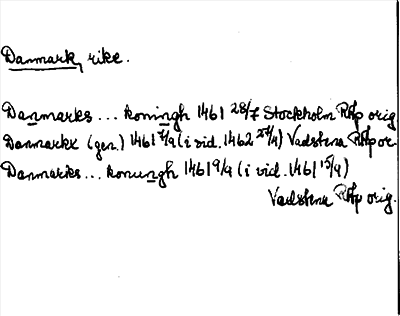 Danmark, rike.
Danmarks ... koningh 1461 28/7 Stockholm RAp orig
Danmarkx (gen.) 1461 7/9 (i vid. 1462 27/4) Vadstena RAp or.
Danmarks ... konungh 1461 9/9 (i vid. 1461 15/9)
Vadstena RAp orig.